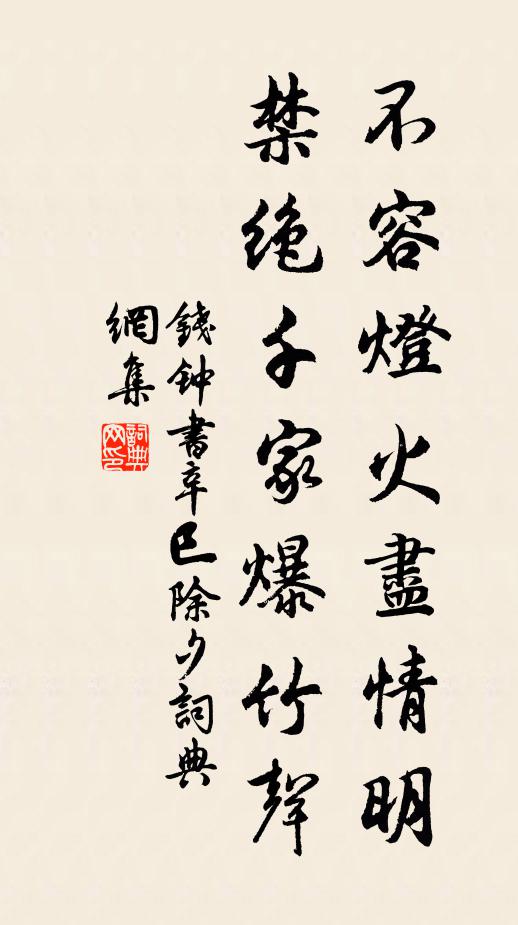 不容燈火盡情明
禁絕千家爆竹聲
錢钟書辛巳除夕詞典
網集
詞典
网印